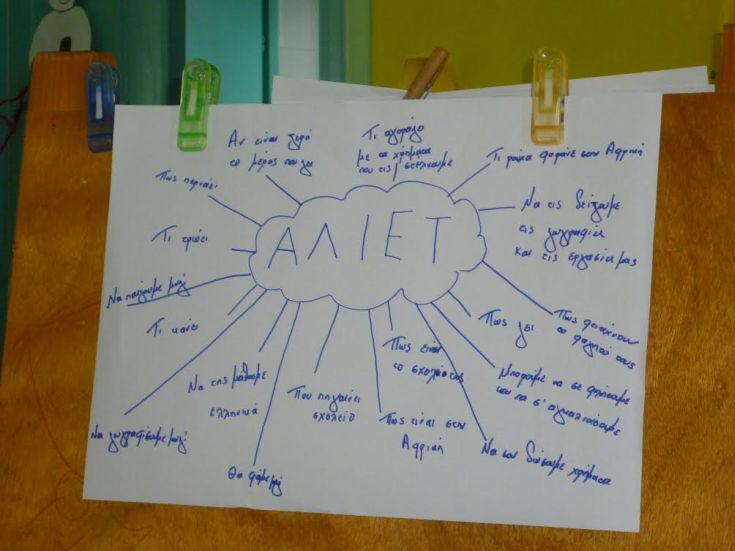 Αν είναι ξερό
το μέρος που ζει
Τι αγοράζει
με τα χρήματα
που τις στέλνουμε
Τι ρούχα φοράνε στην Αφρική
Πως περνάει
Να τις δείξουμε
τις ζωγραφιές
και τις εργασίες μας
ΑΛΙΕΤ
Τι τρώει
Να παίξουμε μαζί
Πως φτιάχνουν
το φαγητό τους
Πως ζει
Τι κάνει
Πως είναι
το σχολείο της
Μπορούμε να σε φιλήσουμε
και να σ' αγκαλιάσουμε
Να της μάθουμε
ελληνικά
Που πηγαίνει
σχολείο
Πως είναι στην
Αφρική
Να ζωγραφίσουμε μαζί
Θα φάμε μαζί
Να σου δώσουμε χρήματα